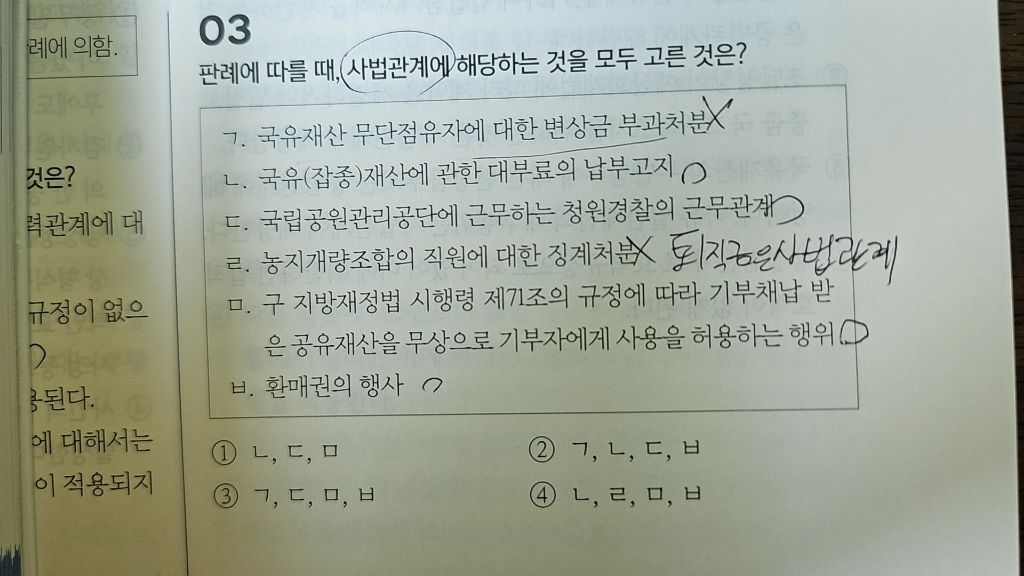 례에 의함.
것은?
력관계에 대
규정이 없으
용된다.
에 대해서는
이 적용되지
03
판례에 따를 때, 사법관계에 해당하는 것을 모두 고른 것은?
ㄱ. 국유재산 무단점유자에 대한 변상금 부과처분 X
ㄴ. 국유(잡종)재산에 관한 대부료의 납부고지 O
ㄷ. 국립공원관리공단에 근무하는 청원경찰의 근무관계 O
ㄹ. 농지개량조합의 직원에 대한 징계처분 X 퇴직금은 사법관계
ㅁ. 구 지방재정법 시행령 제71조의 규정에 따라 기부채납 받
은 공유재산을 무상으로 기부자에게 사용을 허용하는 행위 O
ㅂ. 환매권의 행사 O
① ㄴ, ㄷ, ㅁ ② ㄱ, ㄴ, ㄷ, ㅂ
③ ㄱ, ㄷ, ㅁ, ㅂ ④ ㄴ, ㄹ, ㅁ, ㅂ